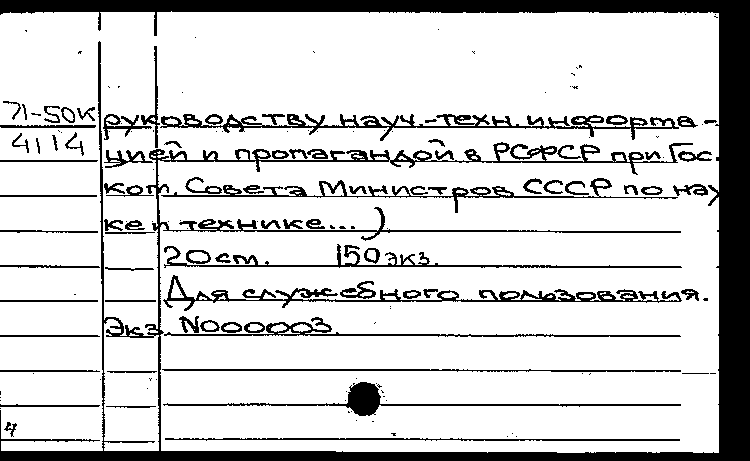 71-50к
4114
руководству науч.-техн. информа-
цией и пропагандой в РСФСР при Гос.
ком. Совета Министров СССР по нау
ке и технике...)
20 ст. 150 экз.
Для служебного пользования.
Экз. N000003.
4